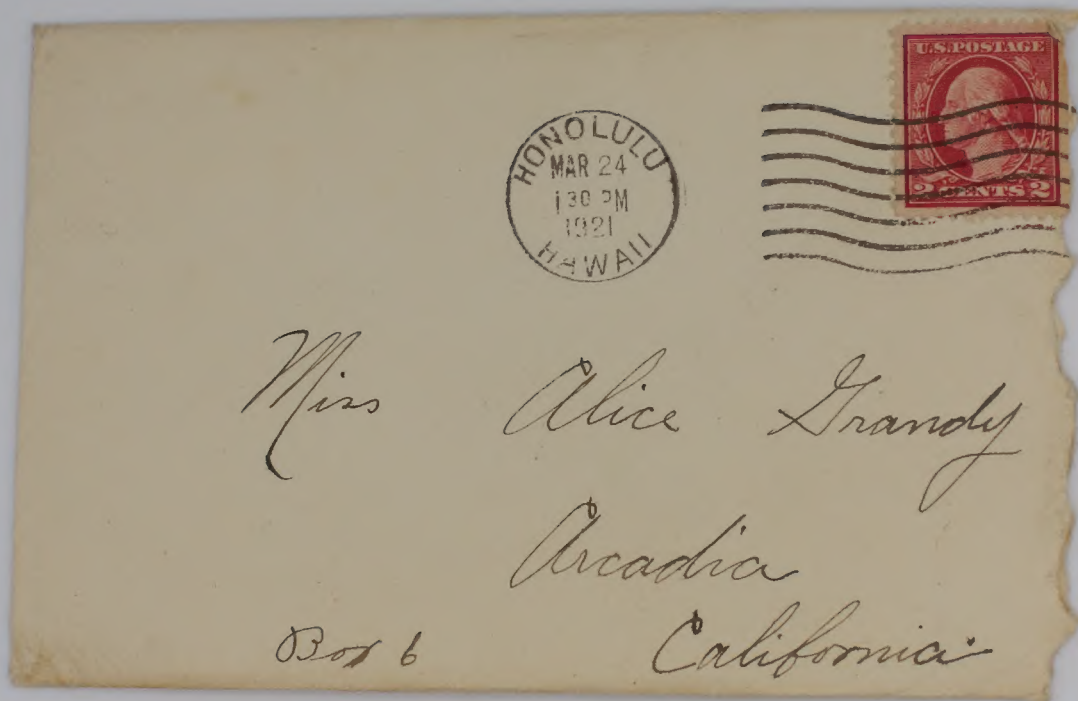 U.S. POSTAGE
2 CENTS 2
HONOLULU
MAR 24
1 30 PM
1921
HAWAII
Miss Alice Grandy
Arcadia
Box 6 California